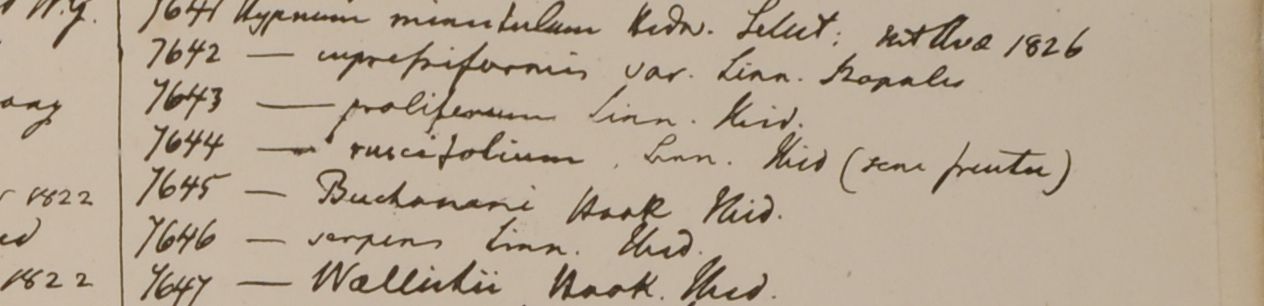 W.G.
7641 Hypnum minutulum Hedw. Sillet: 1826
7642 — cupressiformis var. Linn. Napalia
7643 — proliferum Linn. Ibid.
7644 — ruscifolium, Linn. Ibid (sine fructu)
7645 — Buchanani Hook Ibid.
1822
7646 — serpens Linn. Ibid.
7647 — Wallichii Hook. Ibid.
1822